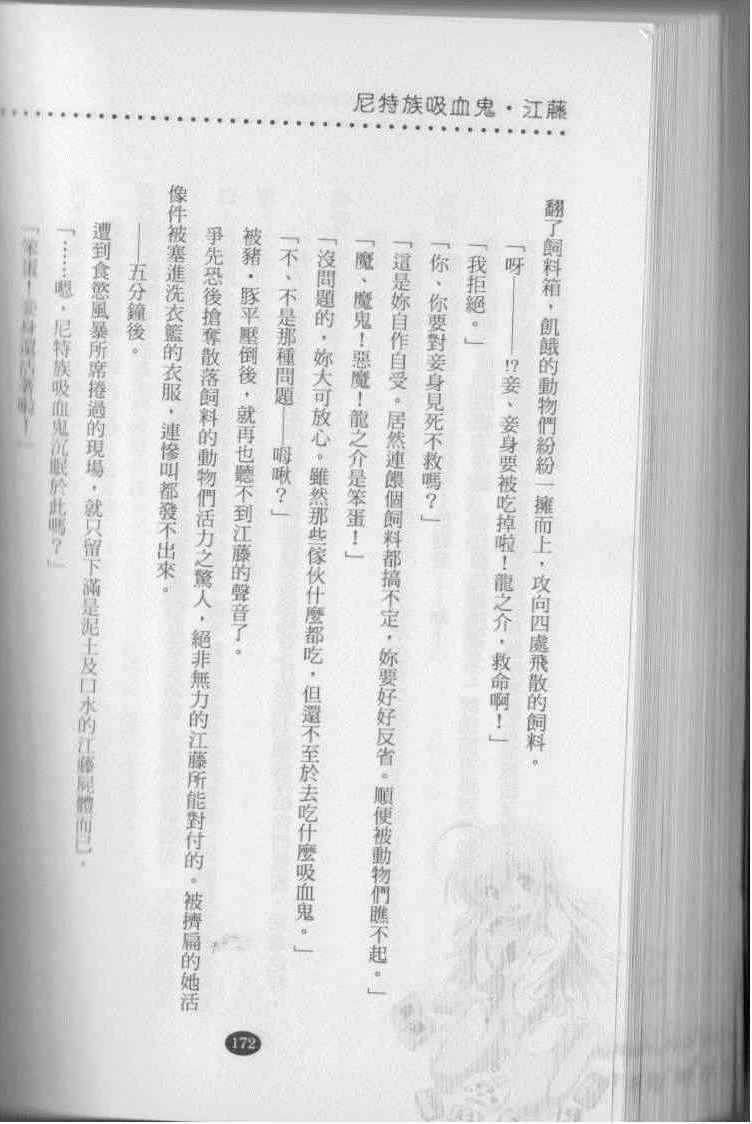 尼特族吸血鬼・江藤
翻了飼料箱，飢餓的動物們紛紛一擁而上，攻向四處飛散的飼料。
「呀———!?妾、妾身要被吃掉啦！龍之介，救命啊！」
「我拒絕。」
「你、你要對妾身見死不救嗎？」
「這是妳自作自受。居然連餵個飼料都搞不定，妳要好好反省。順便被動物們瞧不起。」
「魔、魔鬼！惡魔！龍之介是笨蛋！」
「沒問題的，妳大可放心。雖然那些傢伙什麼都吃，但還不至於去吃什麼吸血鬼。」
「不、不是那種問題——呣啾？」
被豬・豚平壓倒後，就再也聽不到江藤的聲音了。
爭先恐後搶奪散落飼料的動物們活力之驚人，絕非無力的江藤所能對付的。被擠扁的她活
像件被塞進洗衣籃的衣服，連慘叫都發不出來。
——五分鐘後。
遭到食慾風暴所席捲過的現場，就只留下滿是泥土及口水的江藤屍體而已。
「……嗯，尼特族吸血鬼沉眠於此嗎？」
「笨蛋！妾身還活著啦！」
172